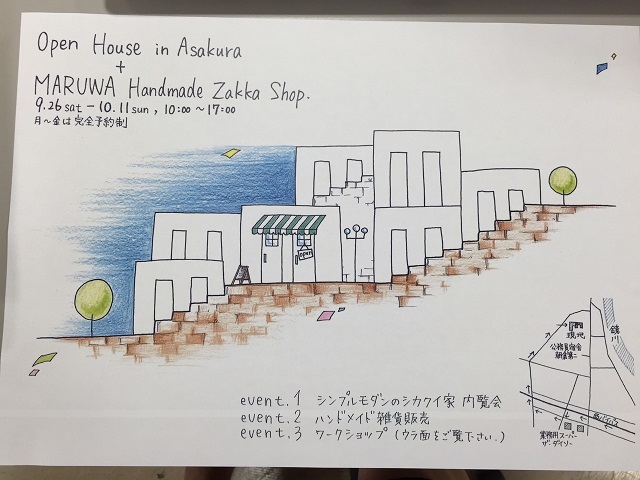 Open House in Asakura
+
MARUWA Handmade Zakka Shop.
9.26 sat - 10.11 sun , 10:00 〜 17:00
月〜金は完全予約制
open
event.1 シンプルモダンのシカクイ家 内覧会
event.2 ハンドメイド雑貨販売
event.3 ワークショップ (ウラ面をご覧下さい。)
現地
鏡川
公務員宿舎
朝倉第二
業務用スーパー
ザ・ダイソー